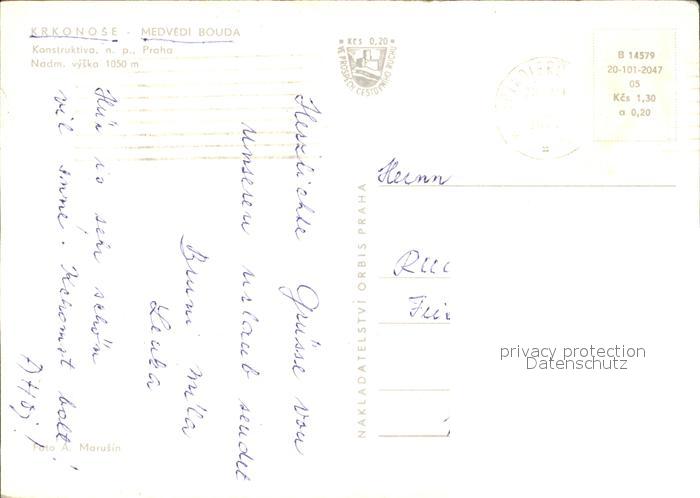 KRKONOŠE - MEDVĚDÍ BOUDA
Konstruktiva, n. p., Praha
Nadm. výška 1050 m
* Kčs 0,20 *
VE PROSPĚCH CESTOVNÍHO RUCHU
B 14579
20-101-2047
05
Kčs 1,30
a 0,20
Herzlichte Grüsse von
unseren urlaub sendet
Bruni mila
Lenka
Hir is sehr schön
vil
bolt!
Ahoj!
NAKLADATELSTVÍ ORBIS PRAHA
Herrn
Foto A. Marušin
privacy protection
Datenschutz